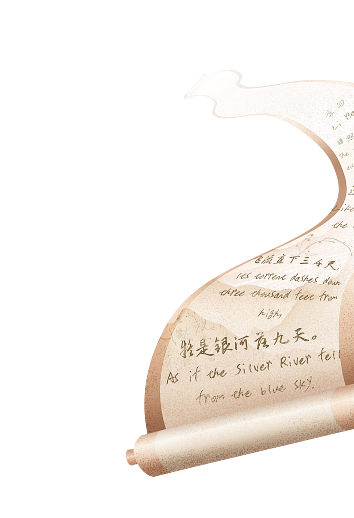 Li
the
Like
the
流直下三千尺
Its torrent dashes down
three thousand feet from
high,
疑是银河落九天。
As if the Silver River fell
from the blue sky.